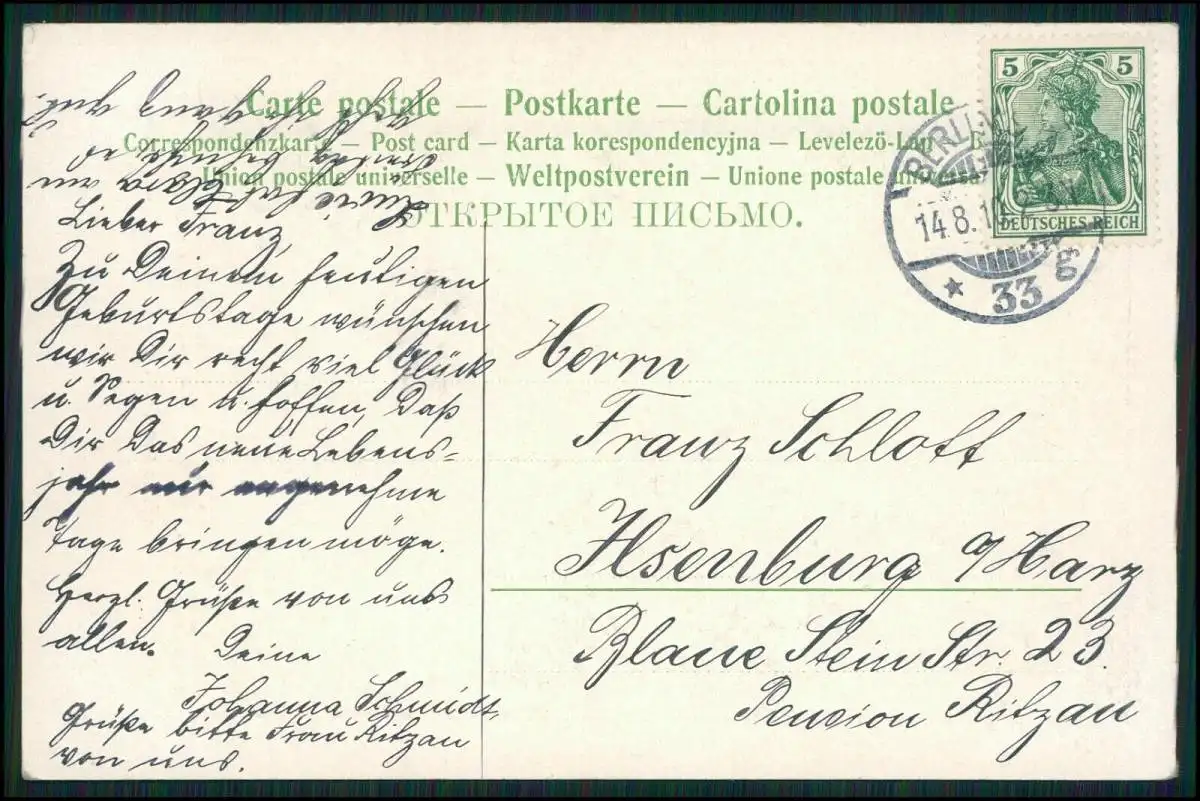 Carte postale — Postkarte — Cartolina postale
Correspondenzkarte — Post card — Karta korespondencyjna — Levelezö-Lap
Union postale universelle — Weltpostverein — Unione postale
ОТКРЫТОЕ ПИСЬМО.
5 5
DEUTSCHES REICH
BERLIN
14.8.1
33 g
Lieber Franz,
Zu Deinem heutigen
Geburtstage wünschen
wir Dir recht viel Glück
u. Segen u. hoffen, daß
Dir das neue Lebens-
jahr nur angenehme
Tage bringen möge.
Herzl. Grüße von uns
allen. Deine
Johanna Schmidt.
Grüße bitte Frau Ritzau
von uns.
Herrn
Franz Schlott
Ilsenburg a/Harz
Blaue Stein Str. 23.
Pension Ritzau